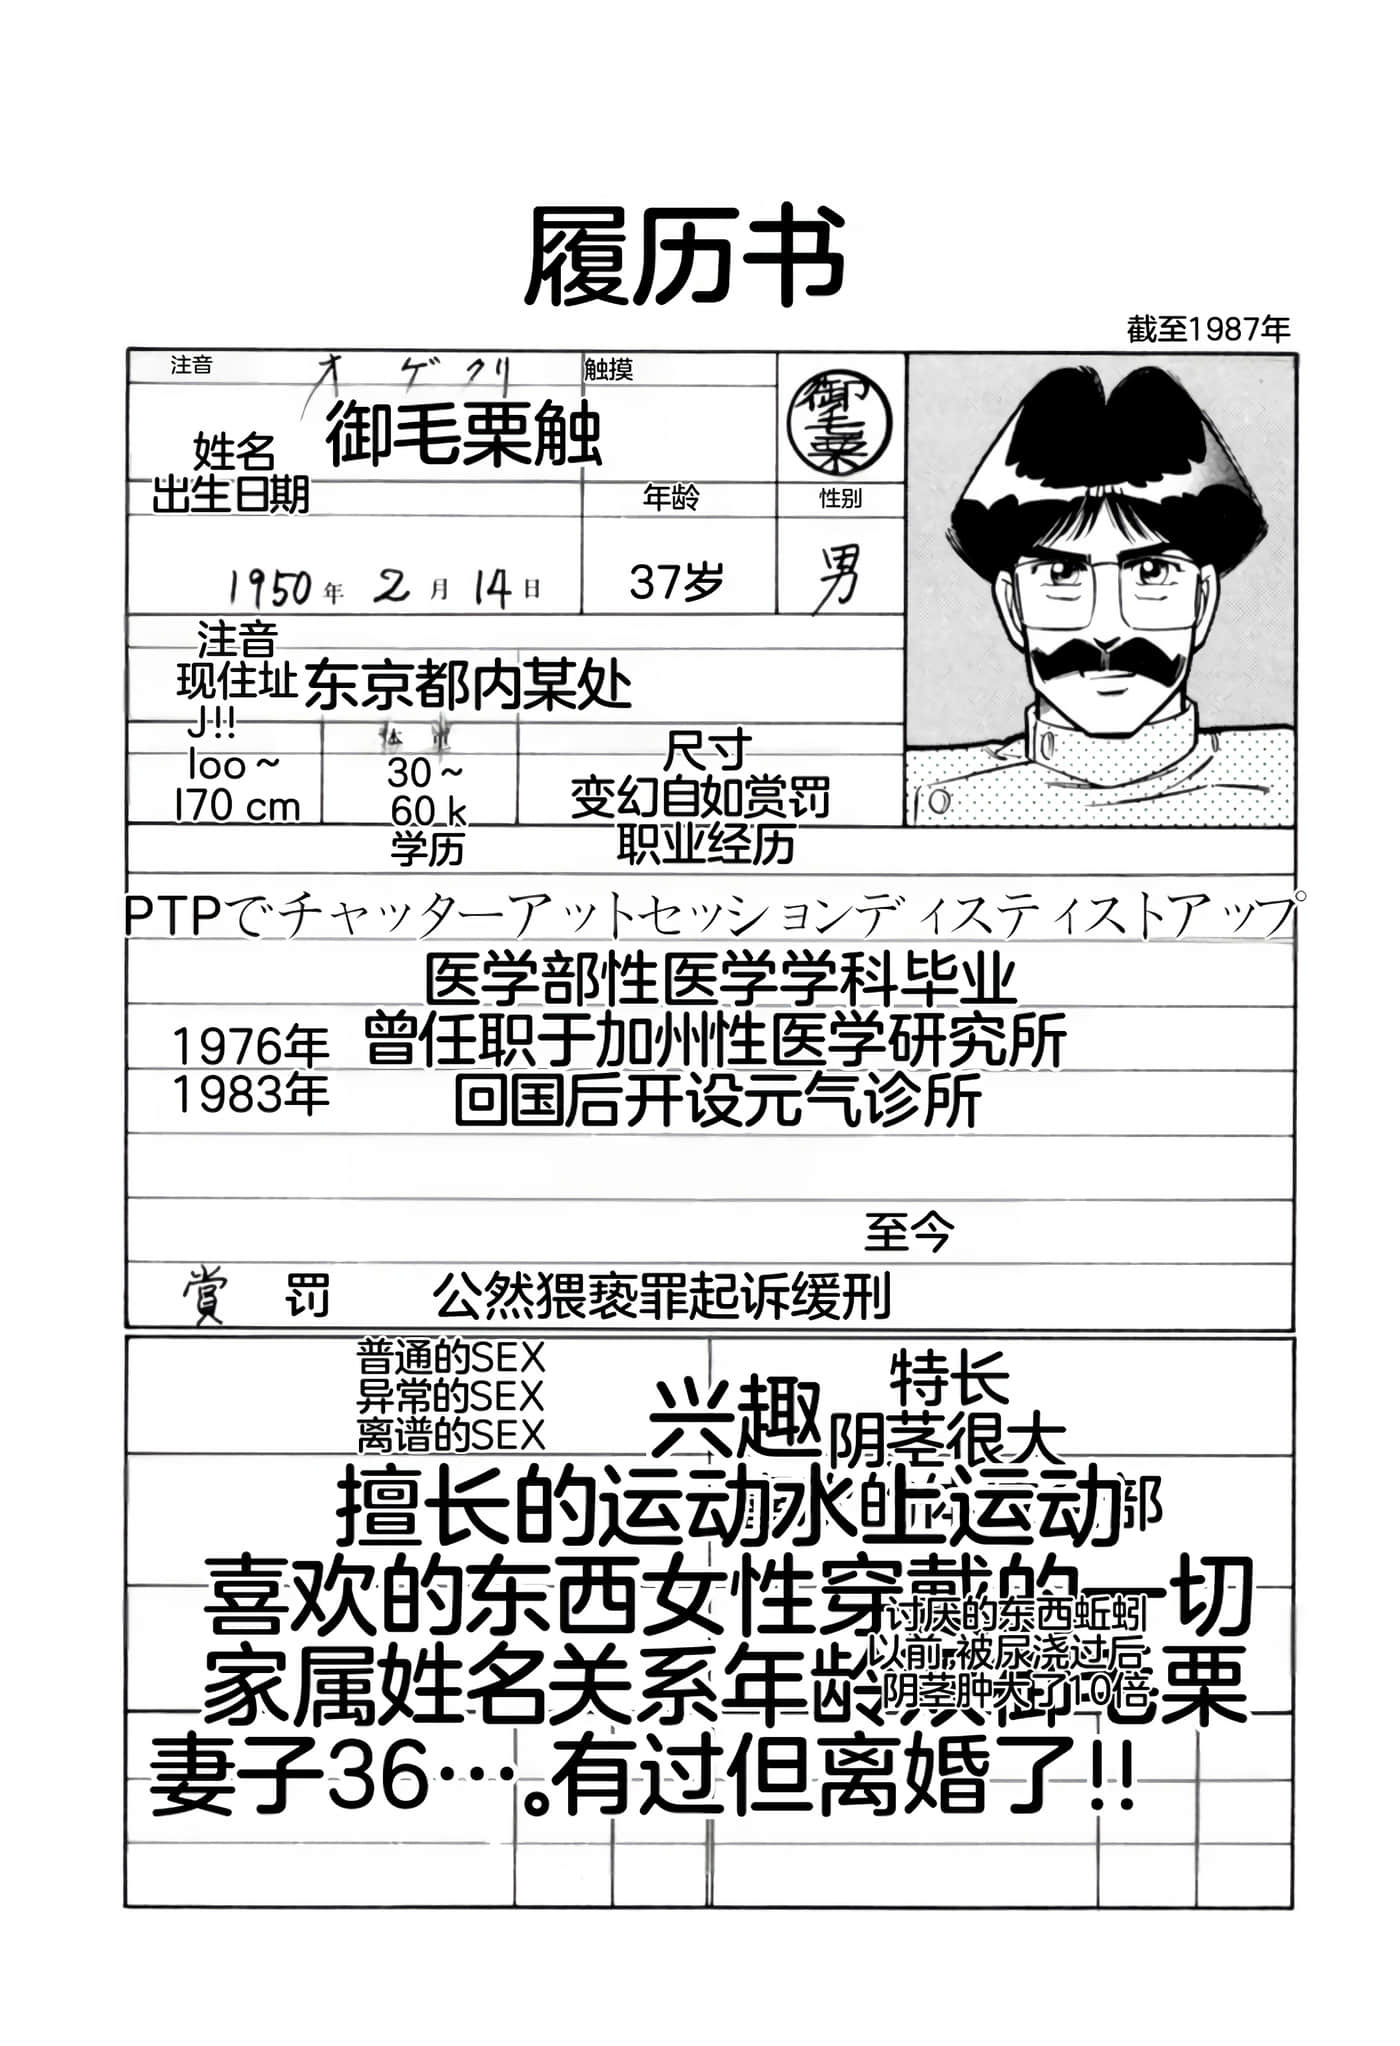 履历书
截至1987年
注音 オゲクリ 触摸
姓名 御毛栗触
御毛栗
出生日期 年龄 性别
1950年2月14日 37岁 男
注音
现住址 东京都内某处
J!!
loo~
l70 cm
30~
60 k
尺寸
变幻自如赏罚
学历 职业经历
PTPでチャッターアットセッションディスティストアップ
医学部性医学学科毕业
1976年 曾任职于加州性医学研究所
1983年 回国后开设元气诊所
至今
賞 罚 公然猥亵罪起诉缓刑
普通的SEX
异常的SEX
离谱的SEX
兴趣
特长
阴茎很大
擅长的运动水上运动
部
喜欢的东西女性穿戴的一切
讨厌的东西蚯蚓
以前,被尿浇过后
阴茎肿大了10倍
家属姓名关系年龄
栗
妻子36…。有过但离婚了!!